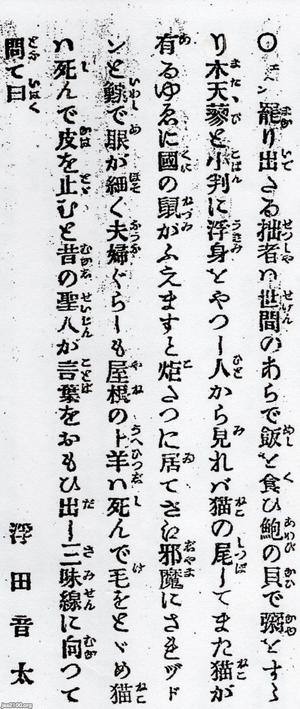 ○ 罷り出たる拙者ハ世間のあらで飯を食ひ鮑の貝で粥をすゝ
り木天蓼と小判に浮身をやつし人から見れバ猫の尾してまた猫が
有るゆゑに國の鼠がふえますと炬たつに居てさへ邪魔にされヅド
ンと鰯で眼が細く夫婦ぐらしも屋根の上羊ハ死んで毛をとゞめ猫
ハ死んで皮を止むと昔の聖人が言葉をおもひ出し三味線に向つて
問て曰
浮田音太
jaa2100.org